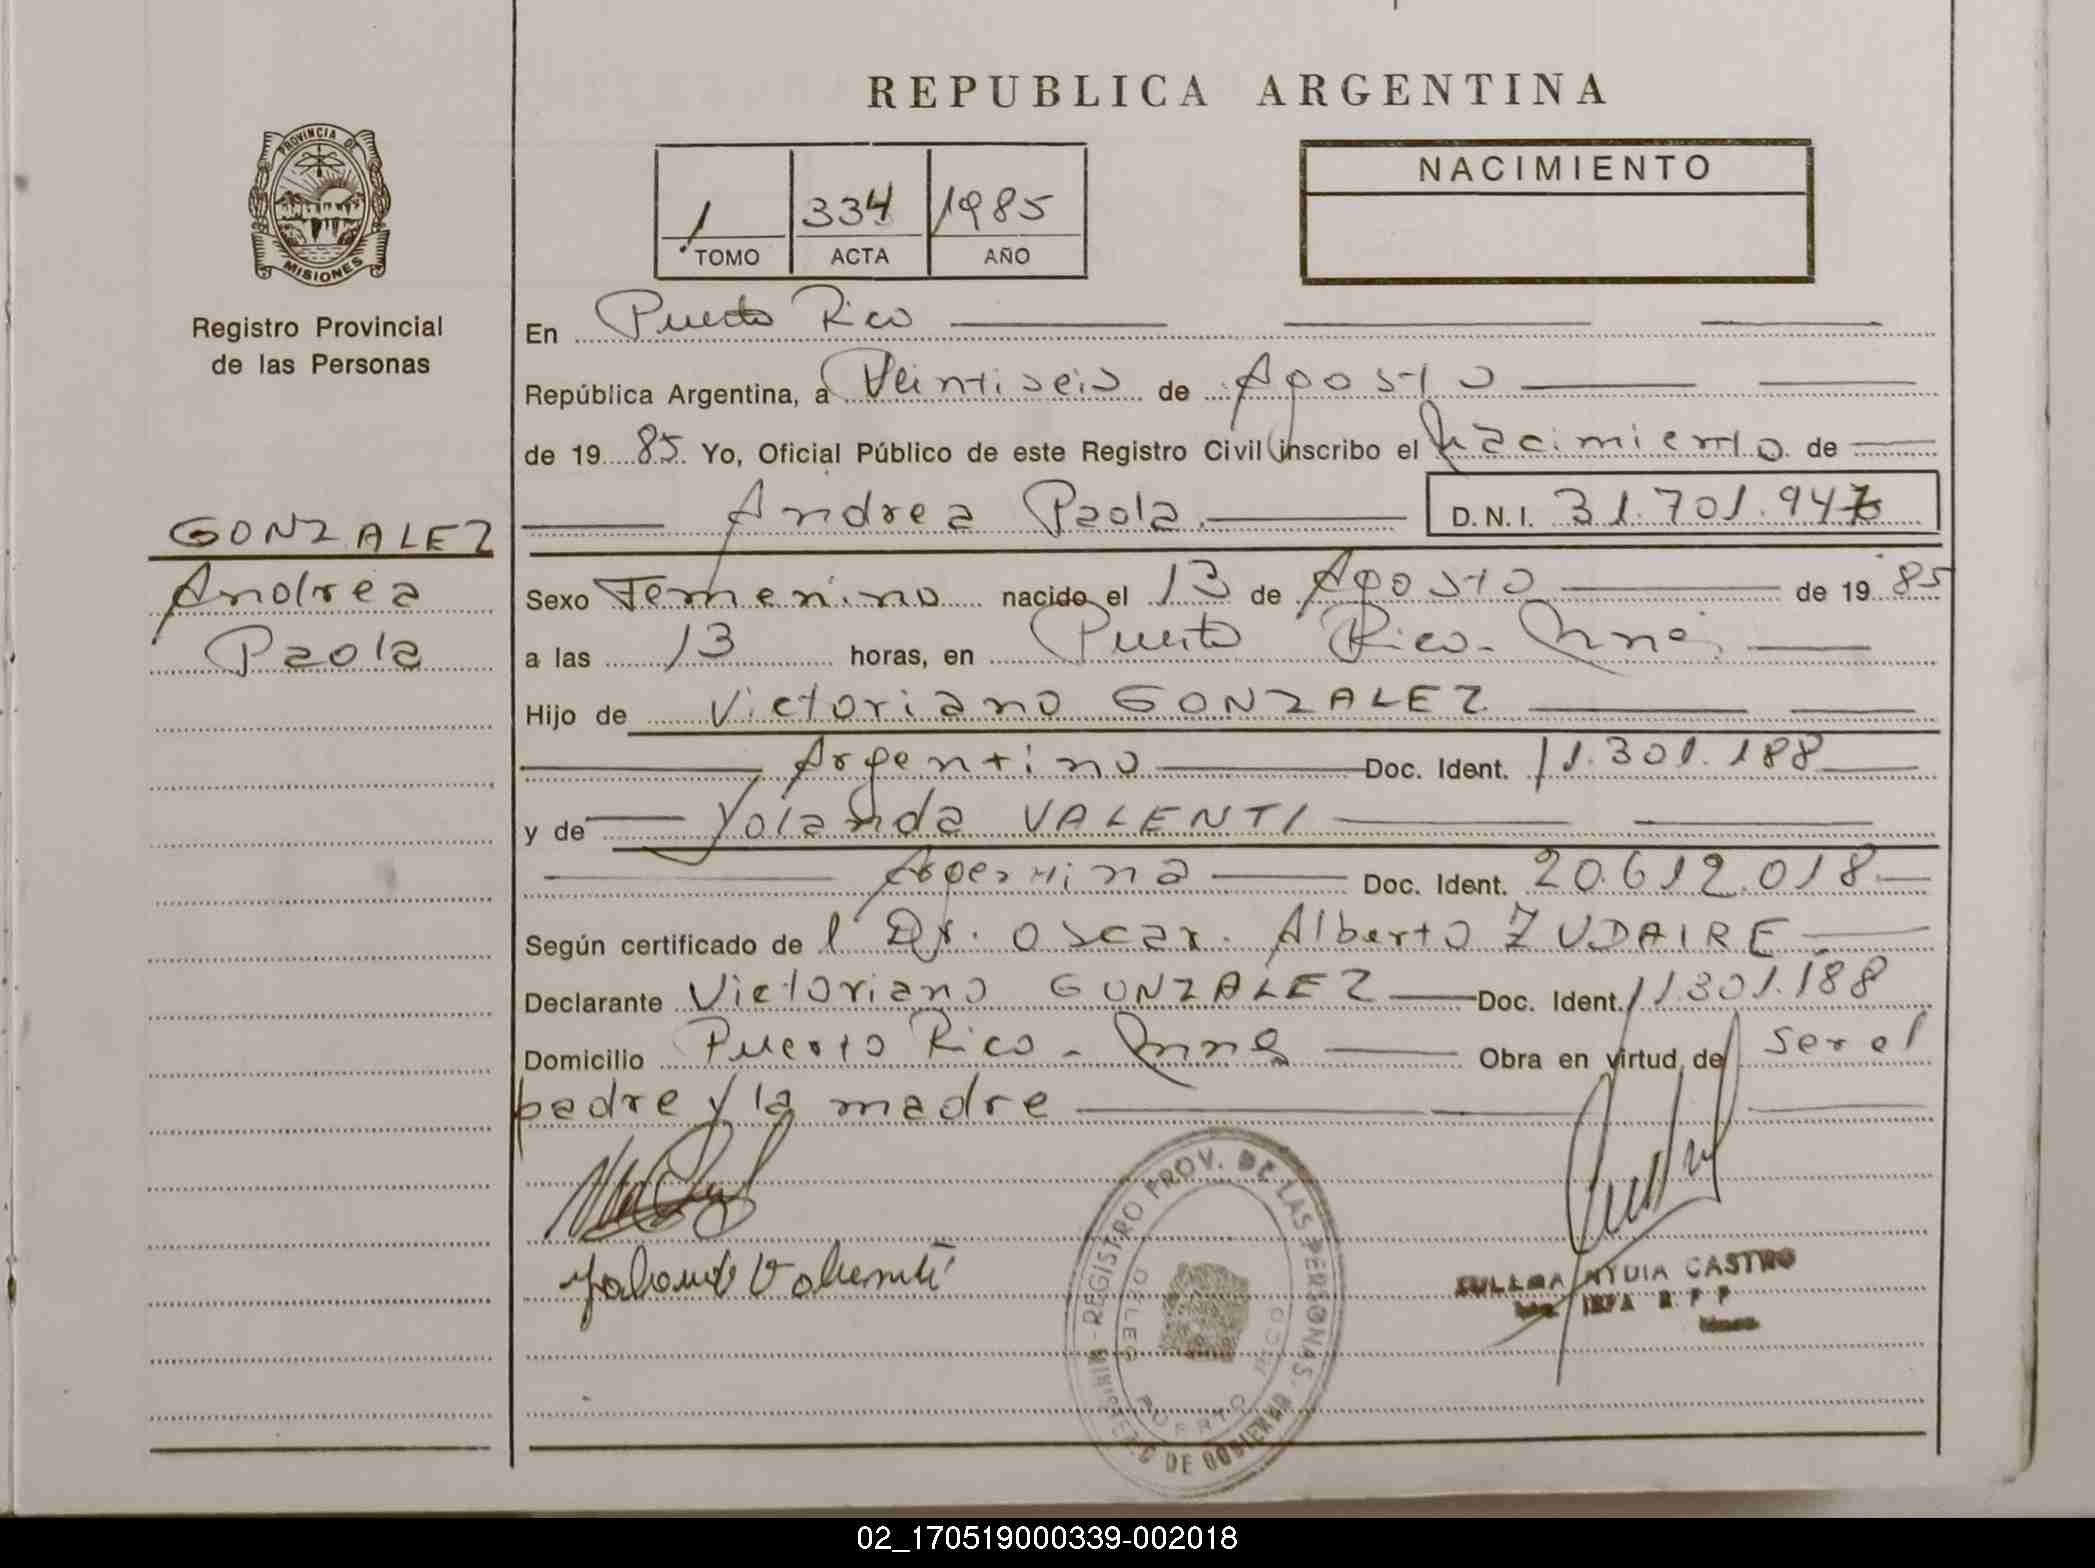 REPUBLICA ARGENTINA
PROVINCIA DE
MISIONES
Registro Provincial
de las Personas
1 334 1985
TOMO ACTA AÑO
NACIMIENTO
En Puerto Rico
República Argentina, a Veintiseis de Agosto
de 1985 Yo, Oficial Público de este Registro Civil inscribo el Nacimiento de
Andrea Paola D.N.I. 31.701.947
GONZALEZ
Andrea
Paola
Sexo Femenino nacido el 13 de Agosto de 1985
a las 13 horas, en Puerto Rico - Mnes
Hijo de Victoriano GONZALEZ
Argentino Doc. Ident. 11.301.188
y de Yolanda VALENTI
Argentina Doc. Ident. 20.612.018
Según certificado de l Dr. Oscar Alberto ZUDAIRE
Declarante Victoriano GONZALEZ Doc. Ident. 11.301.188
Domicilio Puerto Rico - Mnes Obra en virtud de Ser el
padre y la madre
Yolanda Valenti
CASTRO
REGISTRO PROV. DE LAS PERSONAS
MINISTERIO DE GOBIERNO
DELEG. PUERTO RICO
02_170519000339-002018